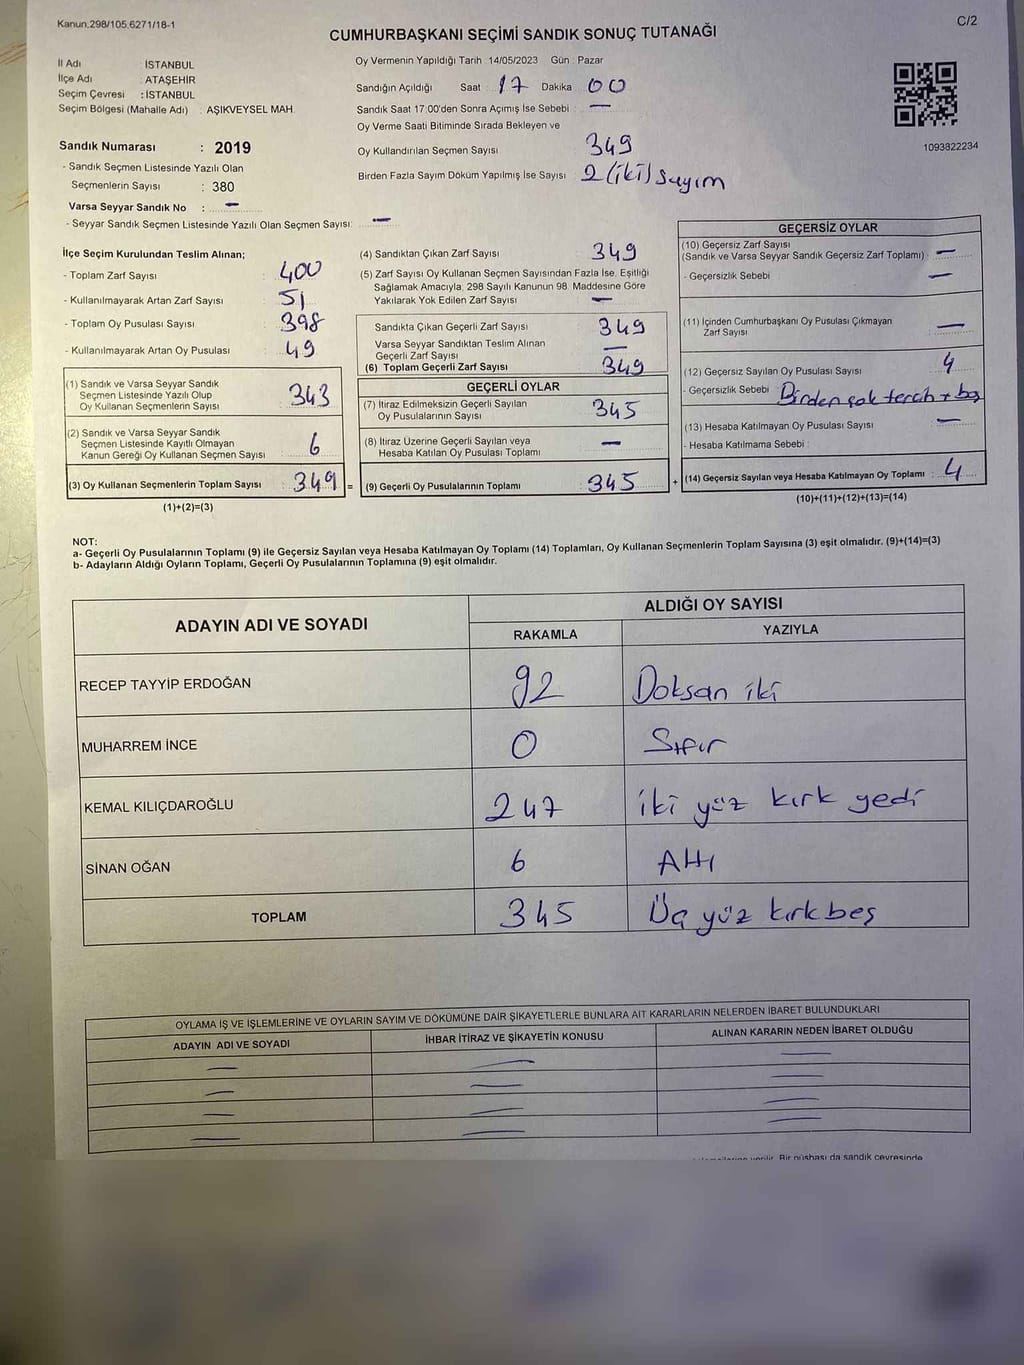 Kanun.298/105.6271/18-1
C/2
CUMHURBAŞKANI SEÇİMİ SANDIK SONUÇ TUTANAĞI
İl Adı : İSTANBUL
İlçe Adı : ATAŞEHİR
Seçim Çevresi : İSTANBUL
Seçim Bölgesi (Mahalle Adı) : AŞIKVEYSEL MAH.
Sandık Numarası : 2019
- Sandık Seçmen Listesinde Yazılı Olan
Seçmenlerin Sayısı : 380
Varsa Seyyar Sandık No : —
- Seyyar Sandık Seçmen Listesinde Yazılı Olan Seçmen Sayısı: —
Oy Vermenin Yapıldığı Tarih : 14/05/2023 Gün : Pazar
Sandığın Açıldığı Saat : 17 Dakika : 00
Sandık Saat 17:00'den Sonra Açımış İse Sebebi : —
Oy Verme Saati Bitiminde Sırada Bekleyen ve
Oy Kullandırılan Seçmen Sayısı : 349
Birden Fazla Sayım Döküm Yapılmış İse Sayısı : 2 (iki) sayım
1093822234
İlçe Seçim Kurulundan Teslim Alınan;
- Toplam Zarf Sayısı : 400
- Kullanılmayarak Artan Zarf Sayısı : 51
- Toplam Oy Pusulası Sayısı : 398
- Kullanılmayarak Artan Oy Pusulası : 49
(1) Sandık ve Varsa Seyyar Sandık
Seçmen Listesinde Yazılı Olup
Oy Kullanan Seçmenlerin Sayısı : 343
(2) Sandık ve Varsa Seyyar Sandık
Seçmen Listesinde Kayıtlı Olmayan
Kanun Gereği Oy Kullanan Seçmen Sayısı : 6
(3) Oy Kullanan Seçmenlerin Toplam Sayısı : 349 =
(1)+(2)=(3)
(4) Sandıktan Çıkan Zarf Sayısı : 349
(5) Zarf Sayısı Oy Kullanan Seçmen Sayısından Fazla İse, Eşitliği
Sağlamak Amacıyla, 298 Sayılı Kanunun 98. Maddesine Göre
Yakılarak Yok Edilen Zarf Sayısı : —
Sandıkta Çıkan Geçerli Zarf Sayısı : 349
Varsa Seyyar Sandıktan Teslim Alınan
Geçerli Zarf Sayısı : —
(6) Toplam Geçerli Zarf Sayısı : 349
GEÇERLİ OYLAR
(7) İtiraz Edilmeksizin Geçerli Sayılan
Oy Pusulalarının Sayısı : 345
(8) İtiraz Üzerine Geçerli Sayılan veya
Hesaba Katılan Oy Pusulası Toplamı : —
(9) Geçerli Oy Pusulalarının Toplamı : 345 +
GEÇERSİZ OYLAR
(10) Geçersiz Zarf Sayısı
(Sandık ve Varsa Seyyar Sandık Geçersiz Zarf Toplamı) : —
- Geçersizlik Sebebi : —
(11) İçinden Cumhurbaşkanı Oy Pusulası Çıkmayan
Zarf Sayısı : —
(12) Geçersiz Sayılan Oy Pusulası Sayısı : 4
- Geçersizlik Sebebi : Birden çok tercih + boş
(13) Hesaba Katılmayan Oy Pusulası Sayısı : —
- Hesaba Katılmama Sebebi :
(14) Geçersiz Sayılan veya Hesaba Katılmayan Oy Toplamı : 4
(10)+(11)+(12)+(13)=(14)
NOT:
a- Geçerli Oy Pusulalarının Toplamı (9) ile Geçersiz Sayılan veya Hesaba Katılmayan Oy Toplamı (14) Toplamları, Oy Kullanan Seçmenlerin Toplam Sayısına (3) eşit olmalıdır. (9)+(14)=(3)
b- Adayların Aldığı Oyların Toplamı, Geçerli Oy Pusulalarının Toplamına (9) eşit olmalıdır.
ADAYIN ADI VE SOYADI
ALDIĞI OY SAYISI
RAKAMLA YAZIYLA
RECEP TAYYİP ERDOĞAN 92 Doksan iki
MUHARREM İNCE 0 Sıfır
KEMAL KILIÇDAROĞLU 247 iki yüz kırk yedi
SİNAN OĞAN 6 Altı
TOPLAM 345 Üç yüz kırk beş
OYLAMA İŞ VE İŞLEMLERİNE VE OYLARIN SAYIM VE DÖKÜMÜNE DAİR ŞİKAYETLERLE BUNLARA AİT KARARLARIN NELERDEN İBARET BULUNDUKLARI
ADAYIN ADI VE SOYADI İHBAR İTİRAZ VE ŞİKAYETİN KONUSU ALINAN KARARIN NEDEN İBARET OLDUĞU
— — —
— — —
— — —
— — —
verilir. Bir nüshası da sandık çevresinde